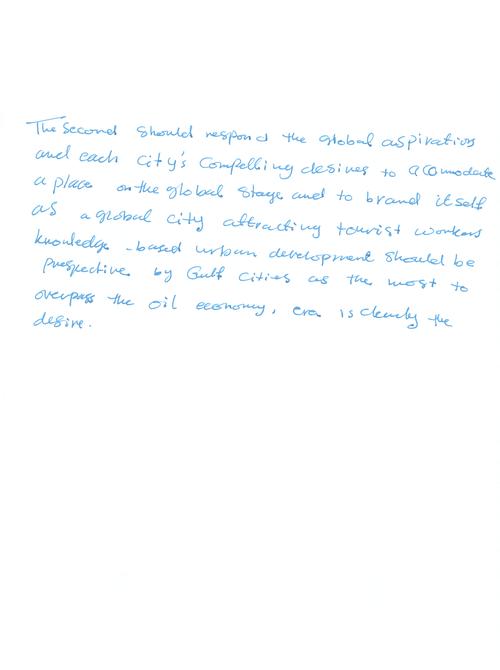 The Second should respond the global aspirations
and each city's compelling desires to acomodate
a place on the global stage and to brand itself
as a global city attracting tourist workers
knowledge-based urban development should be
prespective by Gulf Cities as the most to
overpass the oil economy, era is clearly the
desire.